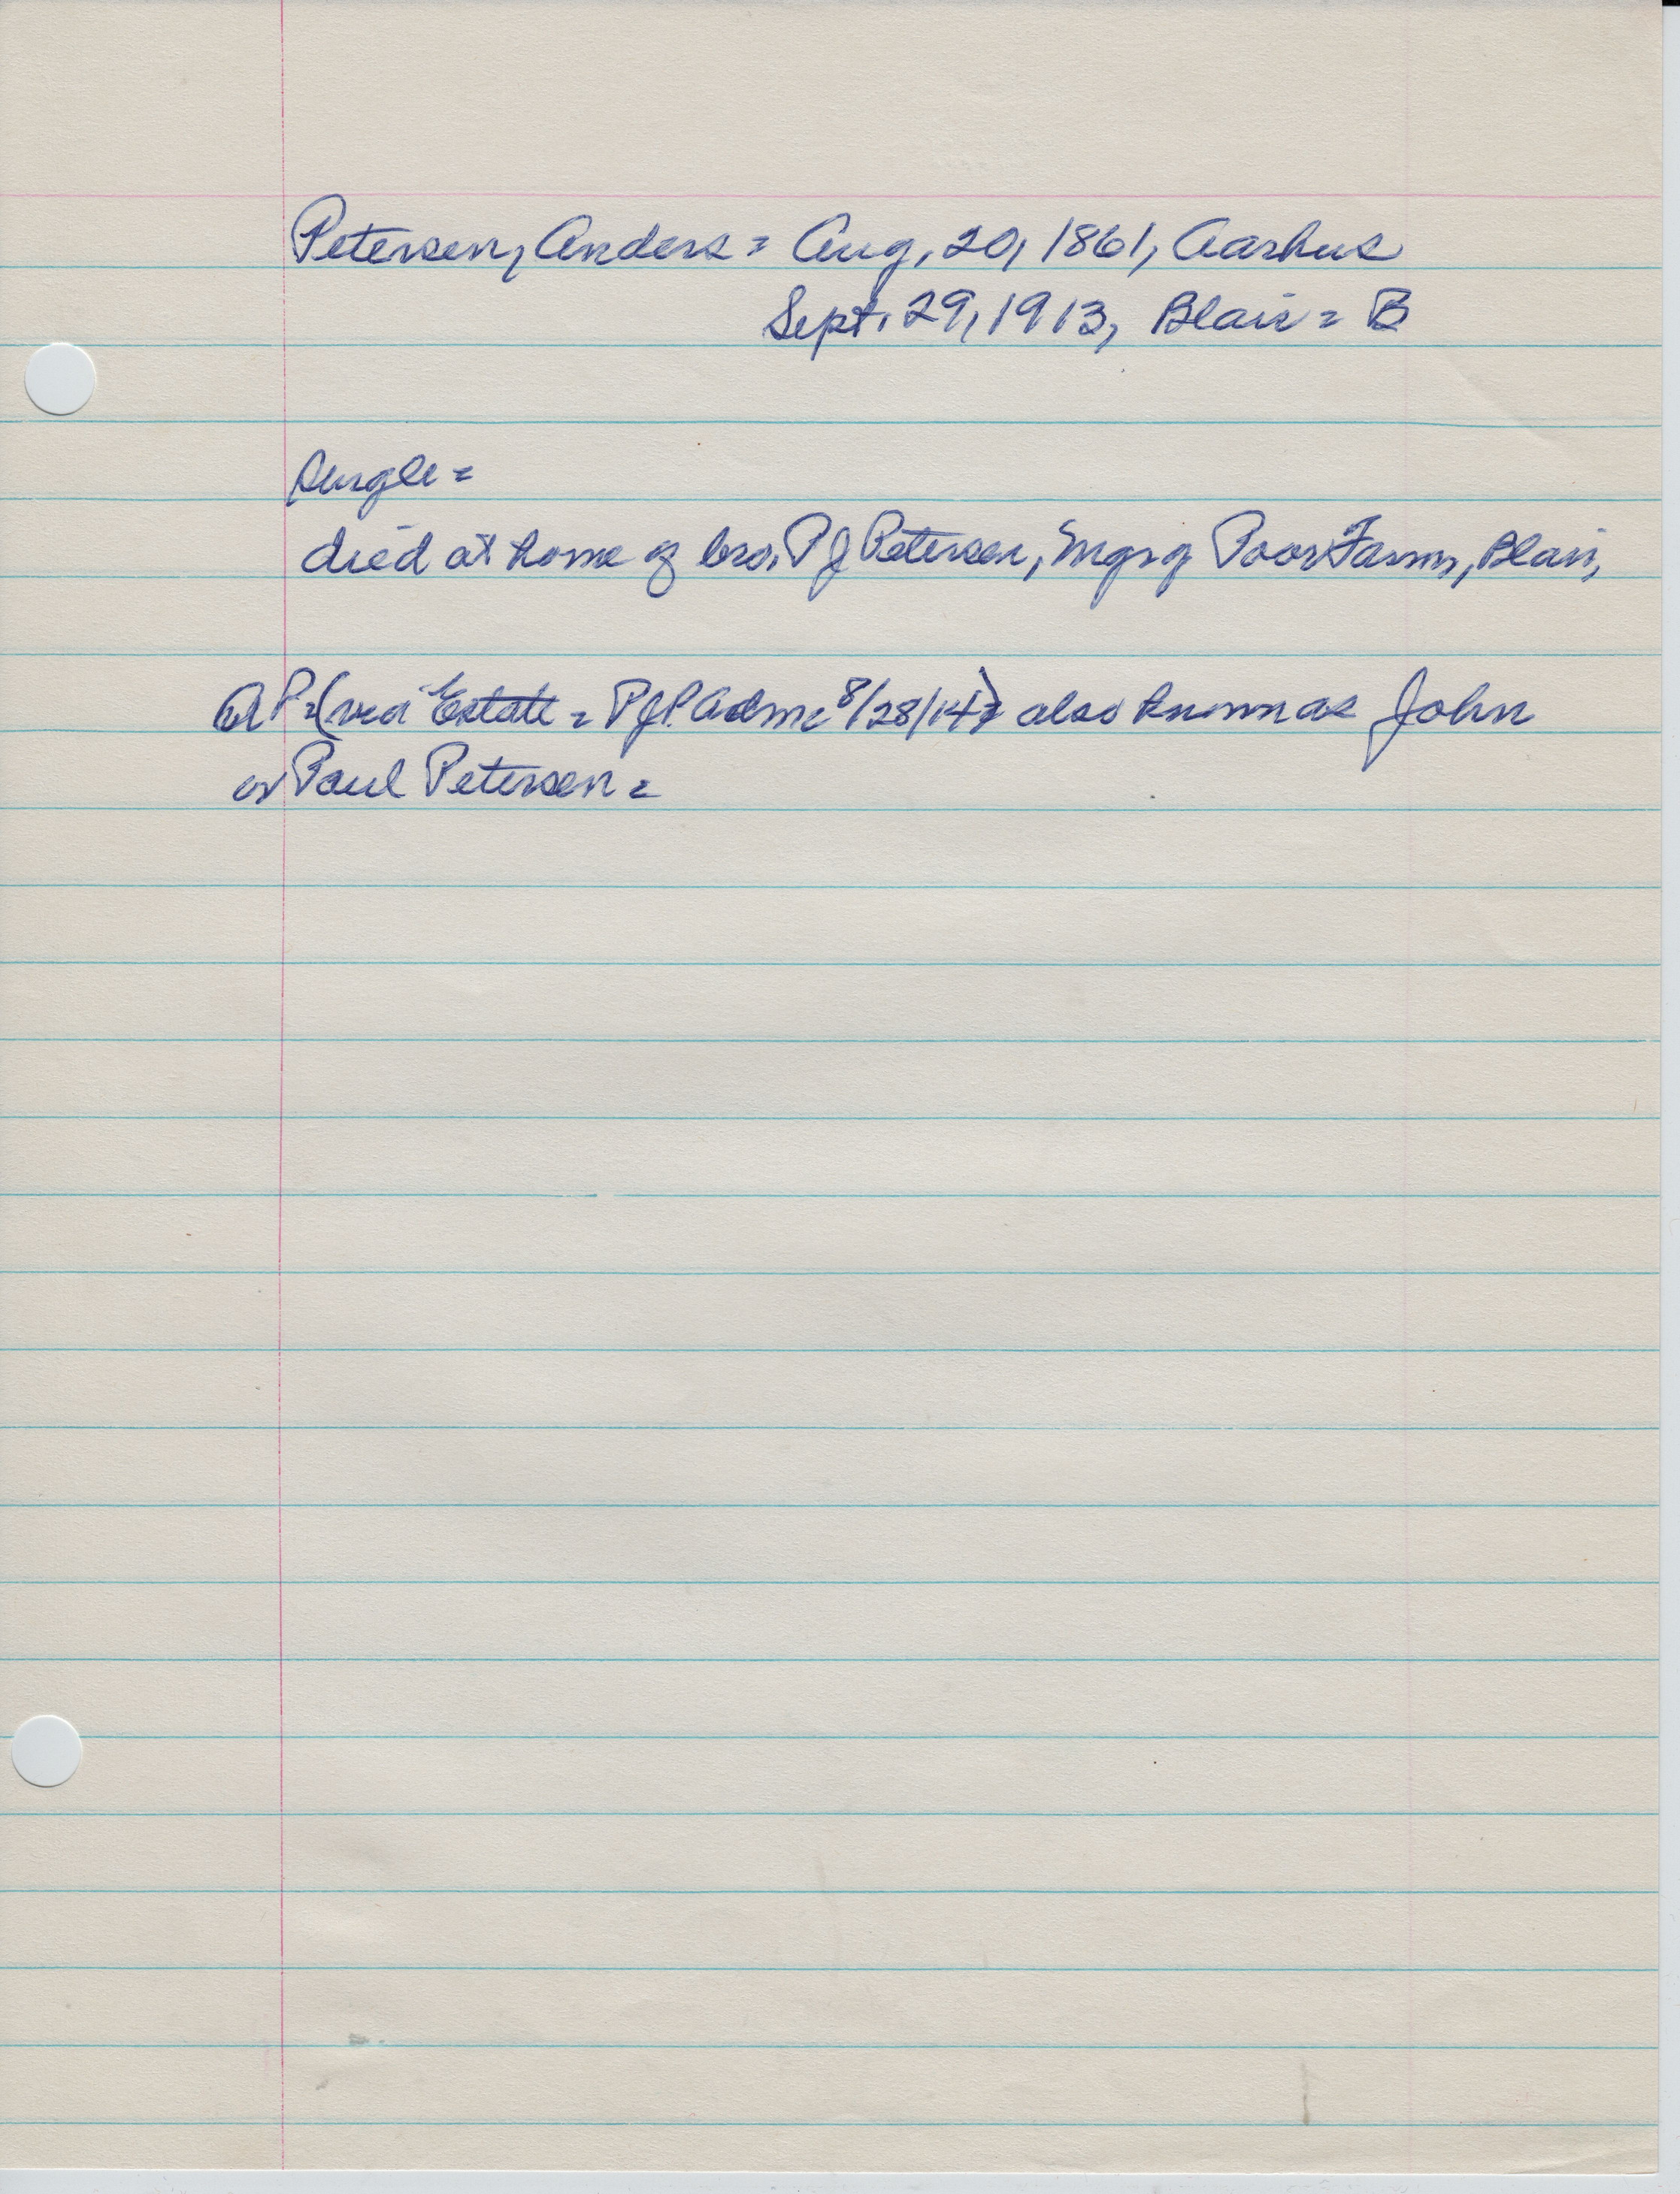 Petersen, Anders = Aug. 20, 1861, Aarhus
Sept. 29, 1913, Blair = B
Single =
died at home of bro. P J Petersen, Mgr of Poor Farm, Blair,
AP = (via Estate = PJP. Adm. 8/28/14) also known as John
or Paul Petersen =